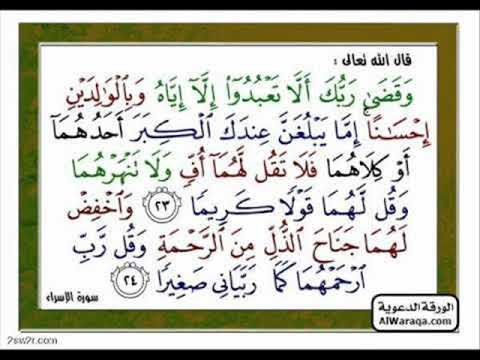 قال الله تعالى :
وَقَضَىٰ رَبُّكَ أَلَّا تَعْبُدُوٓا۟ إِلَّآ إِيَّاهُ وَبِٱلْوَٰلِدَيْنِ
إِحْسَٰنًا ۚ إِمَّا يَبْلُغَنَّ عِندَكَ ٱلْكِبَرَ أَحَدُهُمَآ
أَوْ كِلَاهُمَا فَلَا تَقُل لَّهُمَآ أُفٍّ وَلَا تَنْهَرْهُمَا
وَقُل لَّهُمَا قَوْلًا كَرِيمًا ٢٣ وَٱخْفِضْ
لَهُمَا جَنَاحَ ٱلذُّلِّ مِنَ ٱلرَّحْمَةِ وَقُل رَّبِّ
ٱرْحَمْهُمَا كَمَا رَبَّيَانِى صَغِيرًا ٢٤
سورة الإسراء
الورقة الدعوية
AlWaraqa.com
2sw2r.com